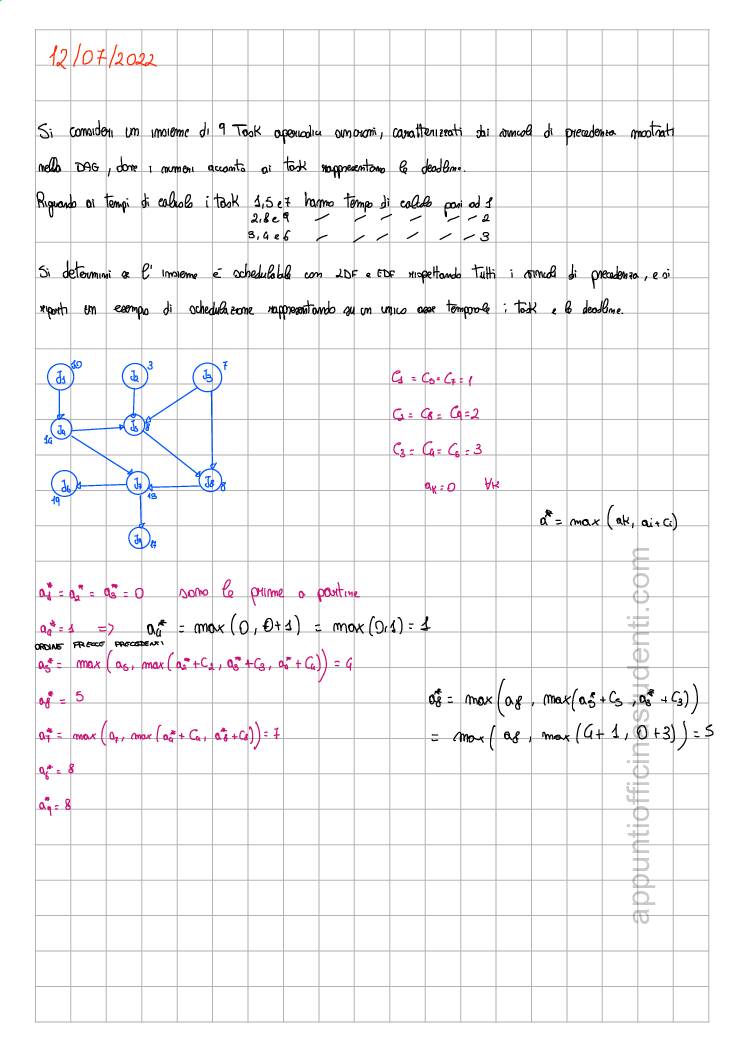 12/07/2022
Si consideri un insieme di 9 Task aperiodici sincroni, caratterizzati dai vincoli di precedenza mostrati
nello DAG, dove i numeri accanto ai task rappresentano le deadline.
Riguardo ai tempi di calcolo i task 1,5 e 7 hanno tempo di calcolo pari ad 1
2,8 e 9 – – – – – – 2
3,4 e 6 – – – – – – 3
Si determini se l'insieme è schedulabile con LDF e EDF rispettando tutti i vincoli di precedenza, e si
riporti un esempio di schedulazione rappresentando su un unico asse temporale i task e le deadline.
J1 10 J2 3 J3 7
C1 = C5 = C7 = 1
C2 = C8 = C9 = 2
J4 14 J5 8
C3 = C4 = C6 = 3
J6 19 J7 13 J8
ak = 0 ∀k
a* = max (ak, ai + Ci)
J9 17
a1* = a2* = a3* = 0 sono le prime a partire
a4* = 1 => a4* = max (0, 0+1) = max (0,1) = 1
ORDINE FRECCE PRECEDENTI
a5* = max (a5, max (a2* + C2, a3* + C3, a4* + C4)) = 4
a8* = 5
a8* = max (a8, max (a5* + C5, a3* + C3))
a7* = max (a7, max (a4* + C4, a8* + C8)) = 7
= max (a8, max (4+1, 0+3)) = 5
a6* = 8
a9* = 8
appuntiofficinastudenti.com